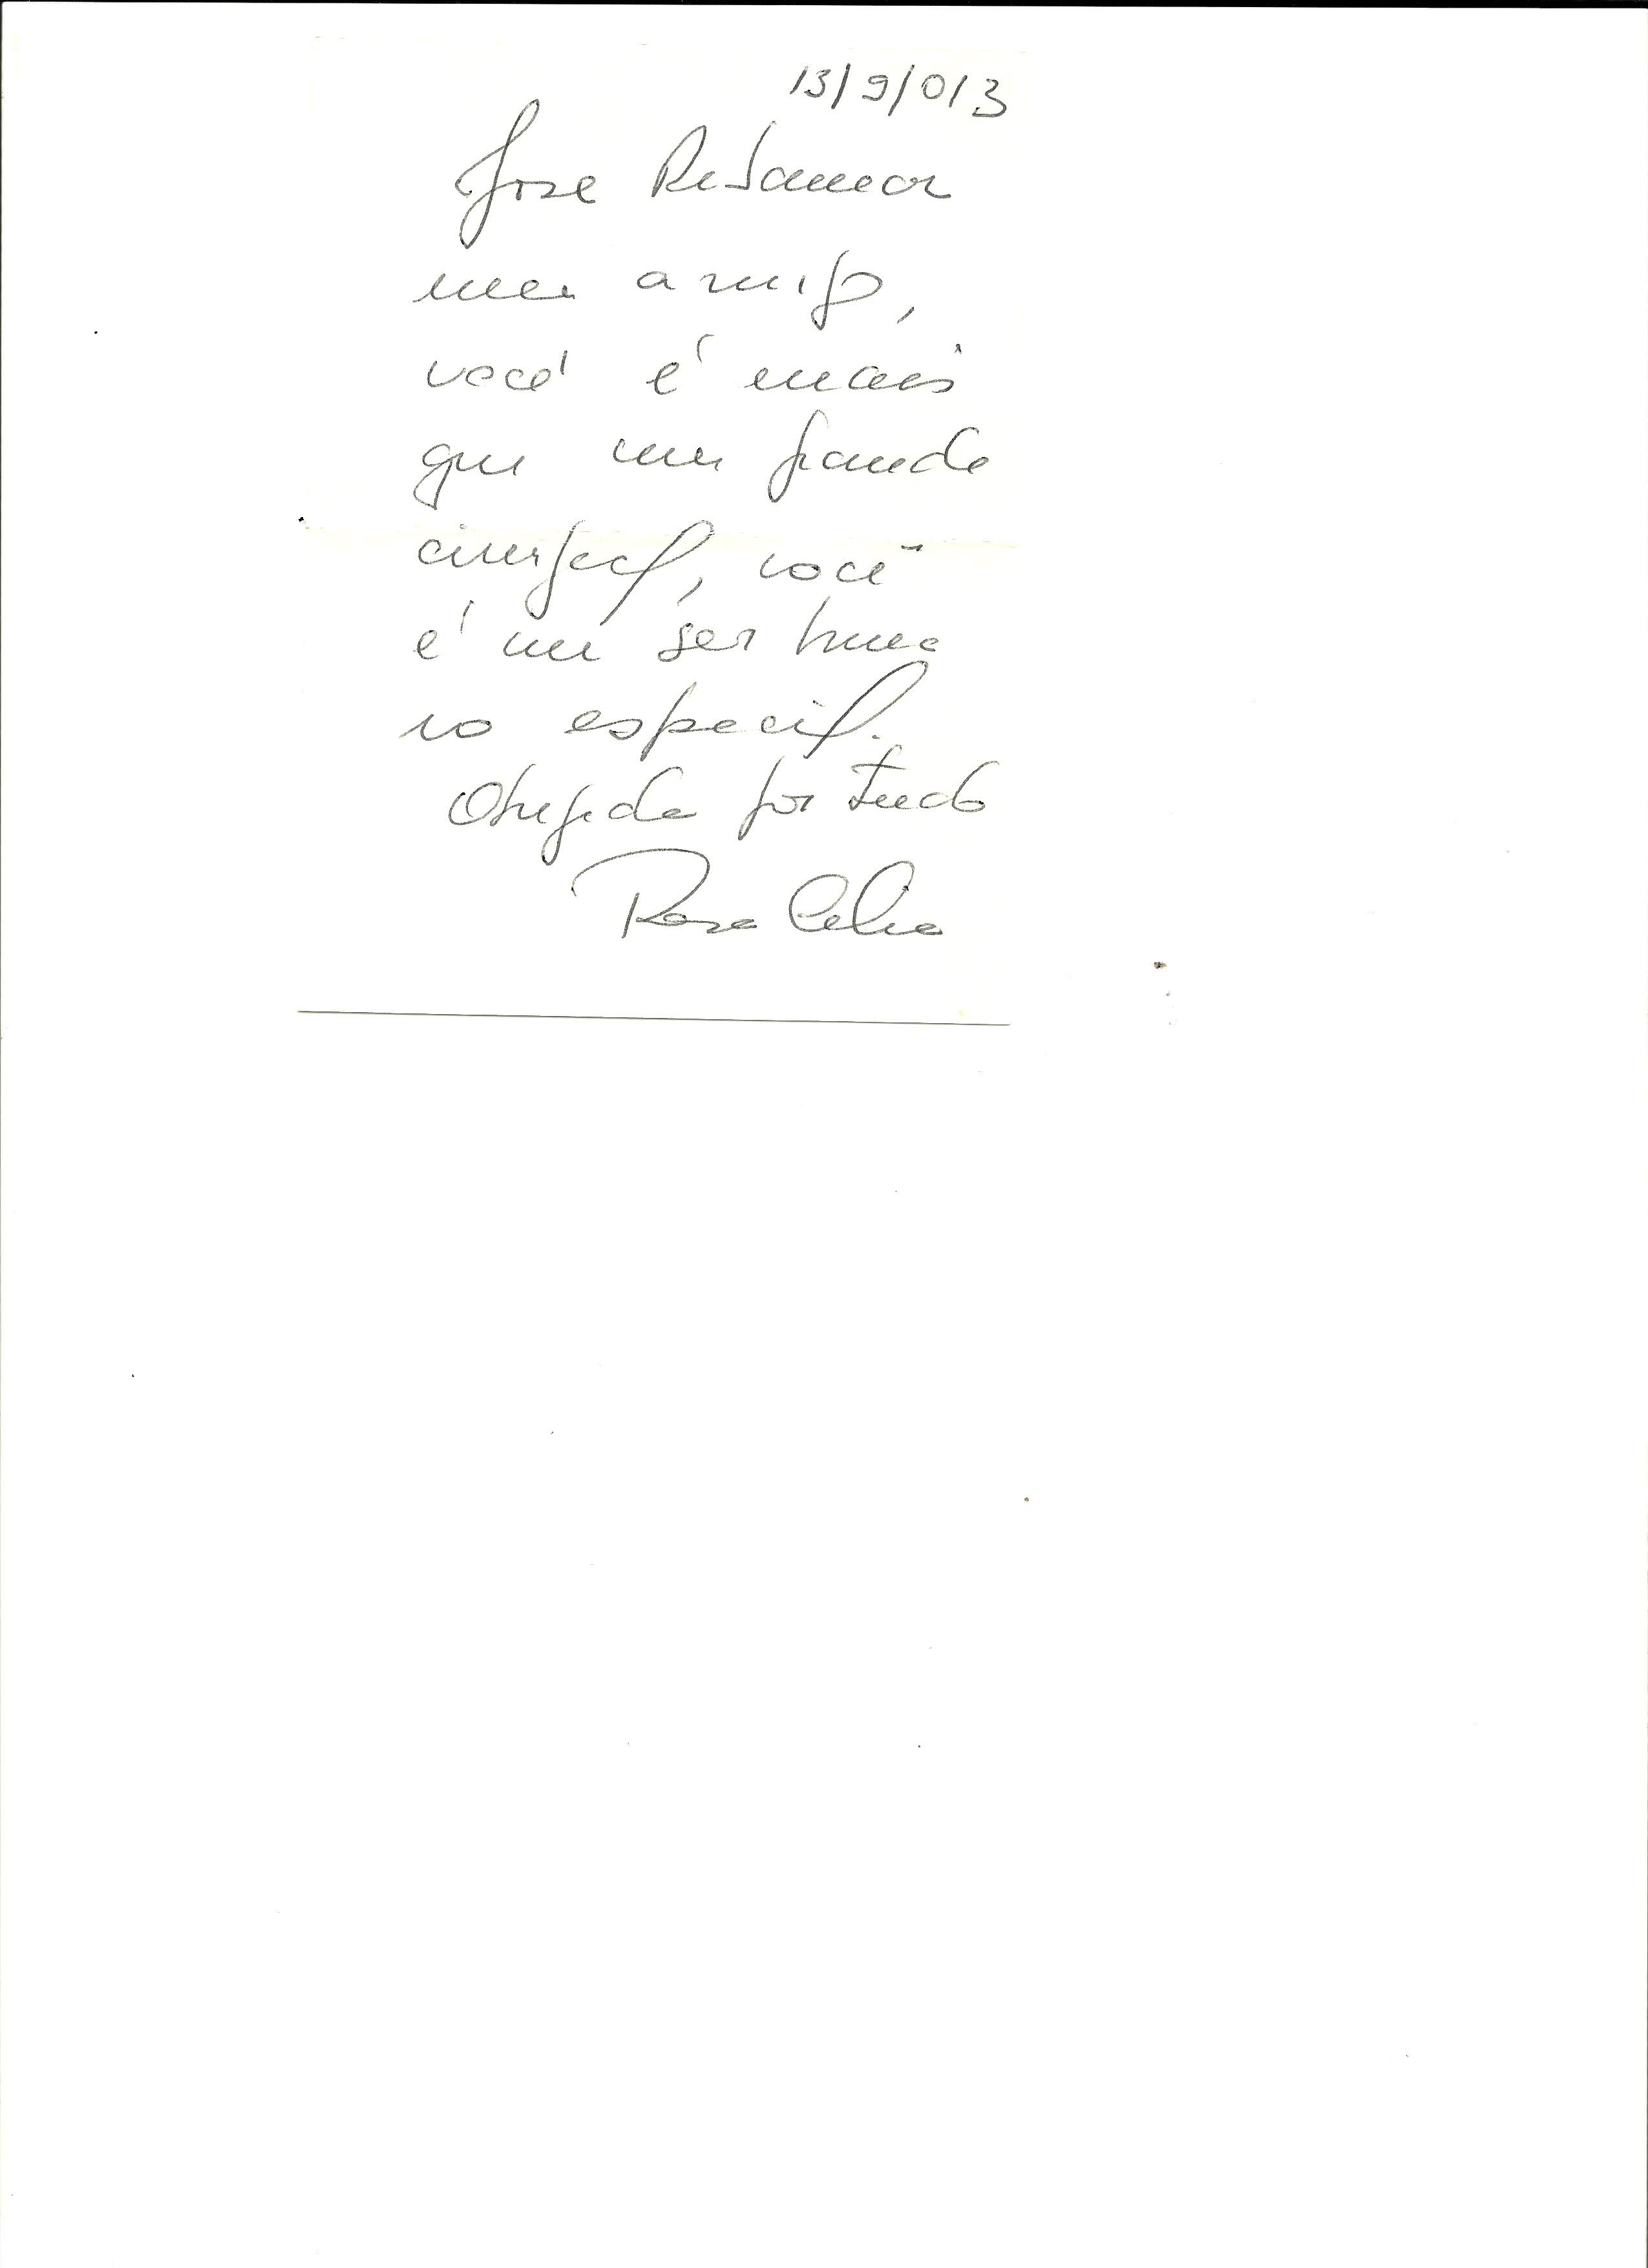 13/9/013
José Retamar
meu amigo,
você é mais
que um grande
cirurgião, você
é um ser huma
no especial.
Obrigada por tudo
Rosa Celia